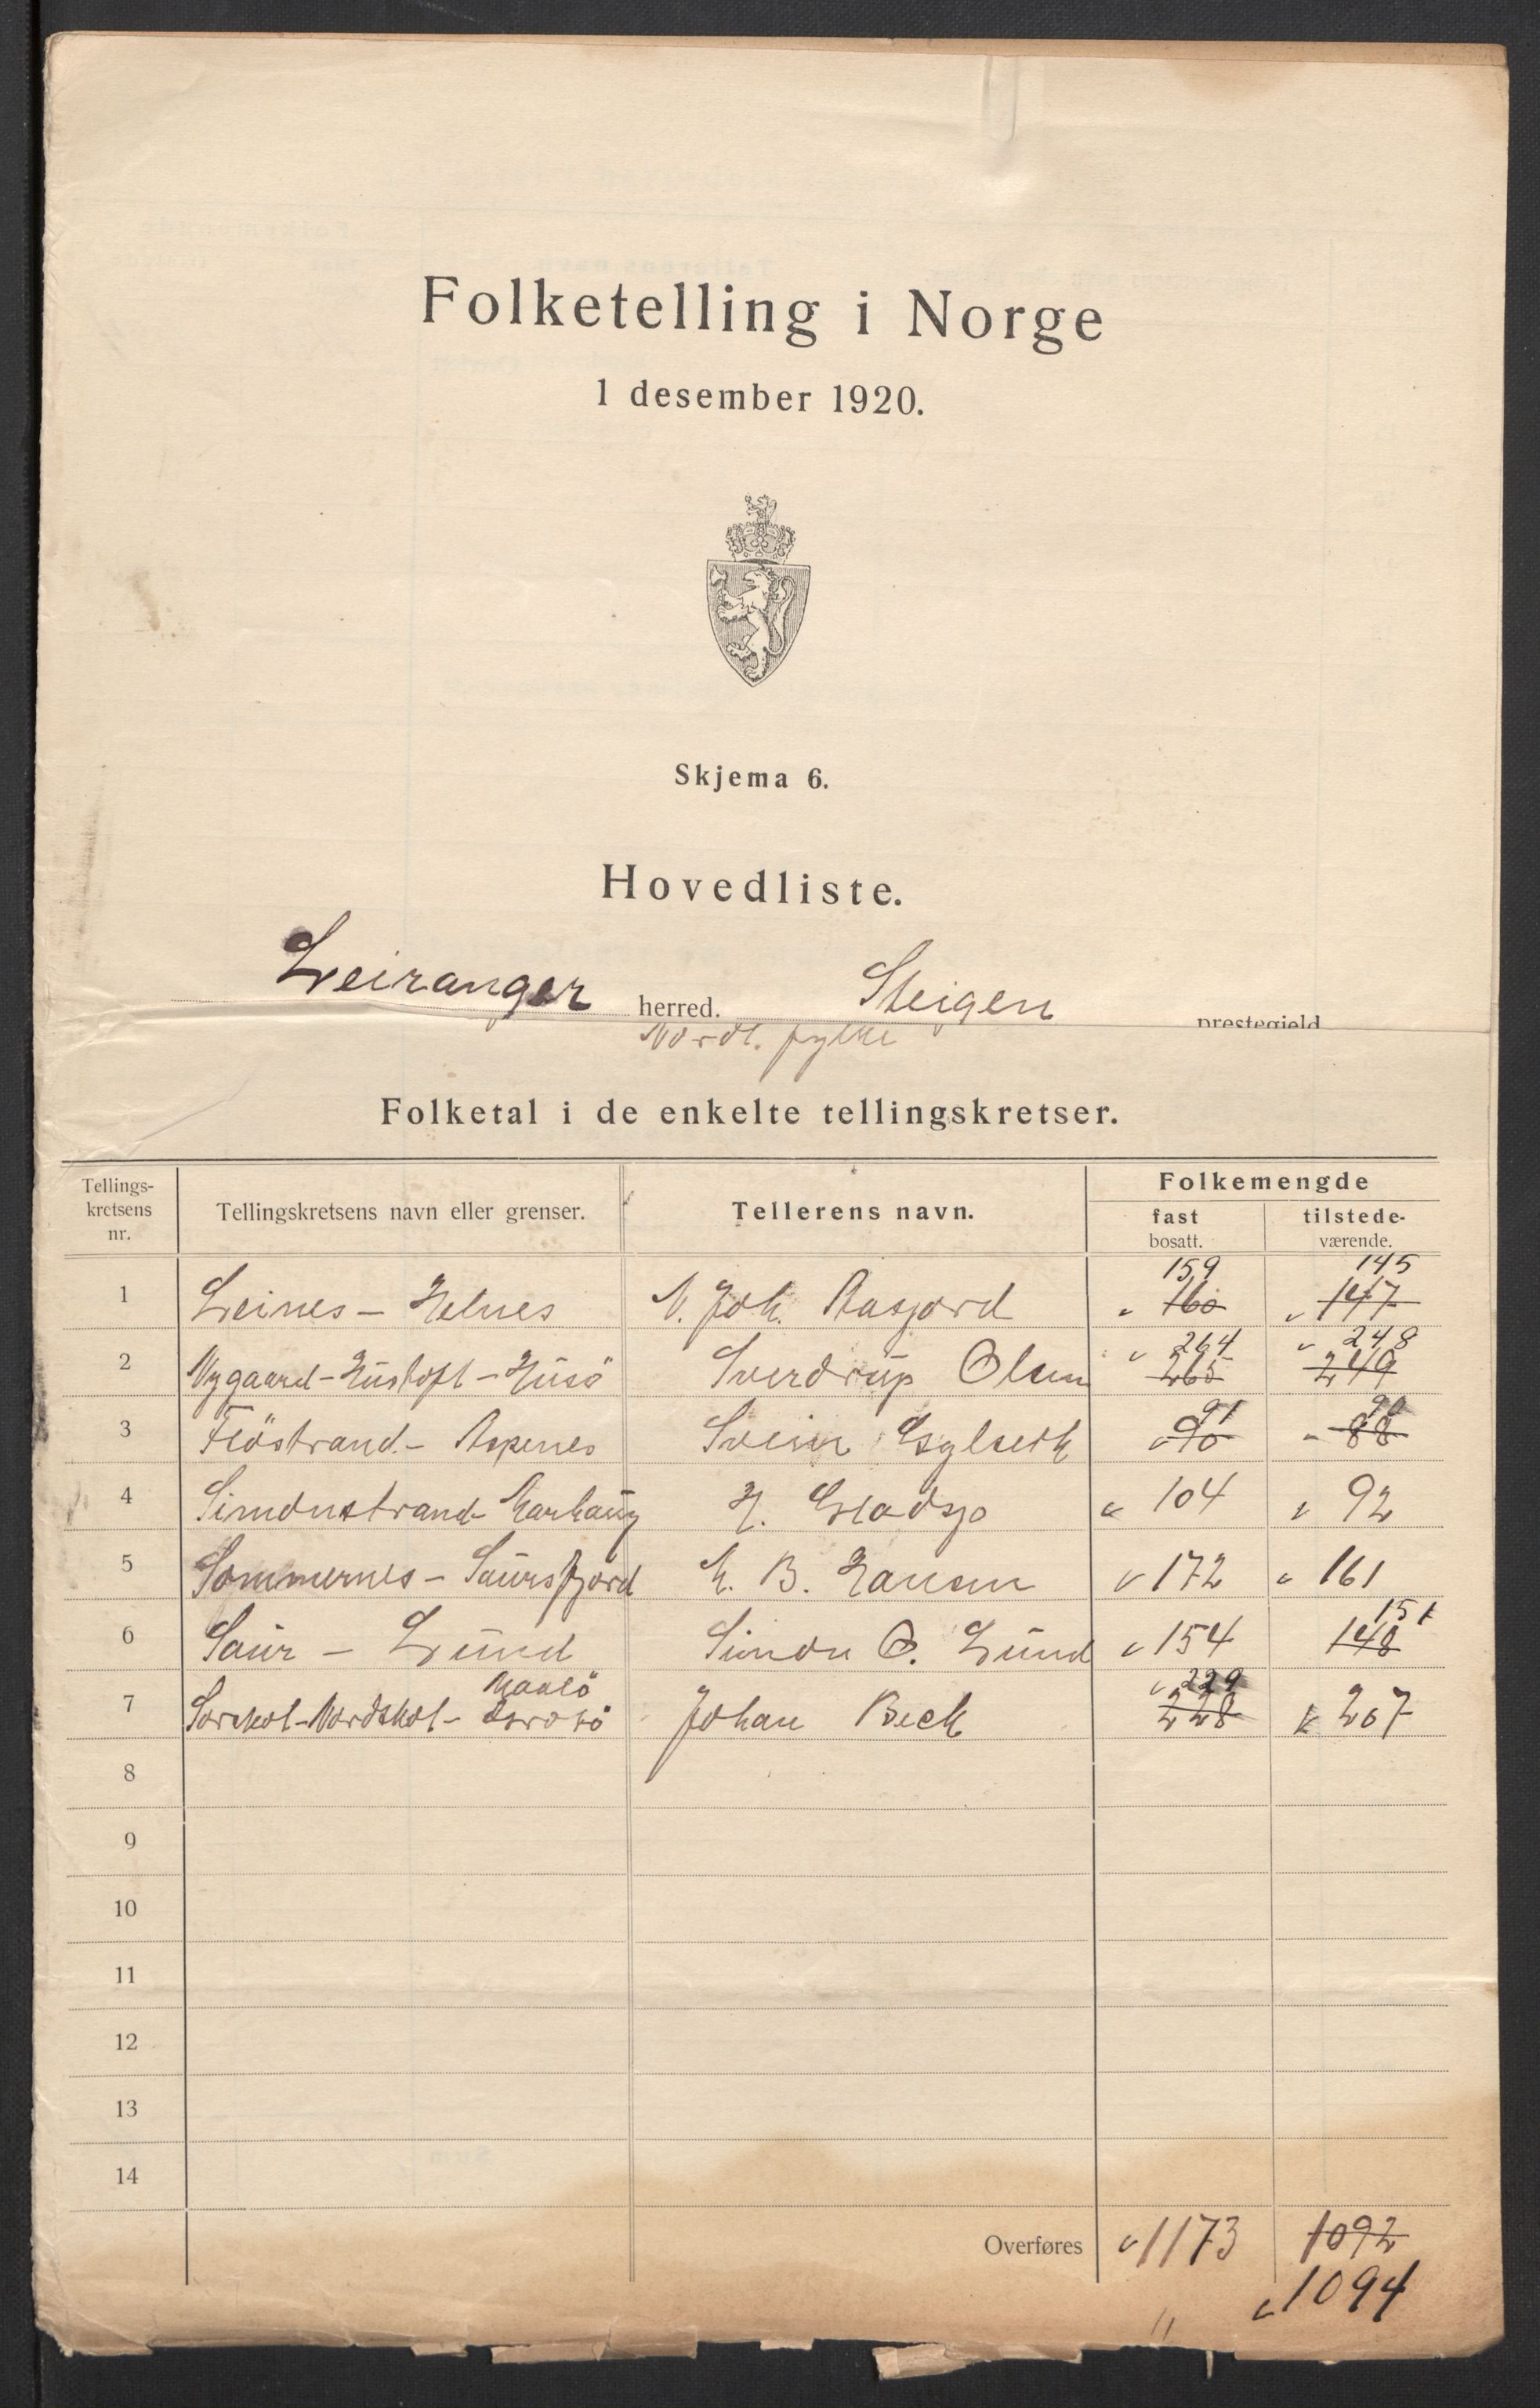 Folketelling i Norge
1 desember 1920.
Skjema 6.
Hovedliste.
Leiranger herred. Steigen prestegjeld
Nordl. fylke
Folketal i de enkelte tellingskretser.
Tellings-
kretsens
nr.
Tellingskretsens navn eller grenser.
Tellerens navn.
Folkemengde
fast
bosatt.
tilstede-
værende.
159 145
1 Leines – Helnes N. Joh. Aasjord 160 147
264 248
2 Nygaard – Hustoft – Husö Sverdrup Olsen 265 249
91 90
3 Flöstrand – Aspenes Svein Gylseth 90 88
4 Simonstrand – H. Gladsjo 104 92
5 Sommernes – Saursfjord B. Hansen 172 161
151
6 Saur – Lund Simon O. Lund 154 148
Maalö 229
7 Sorskot – Nordskot – Johan Beck 228 207
8
9
10
11
12
13
14
Overføres 1173 1092
" 1094